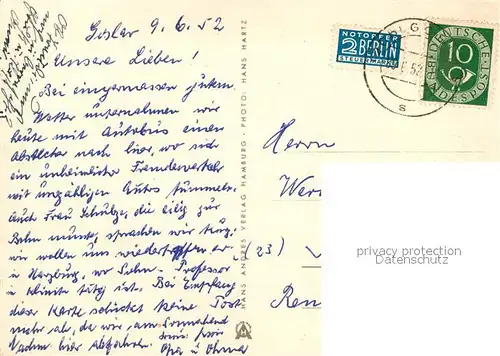 Goslar 9.6.52
Unsere Lieben!
Bei einigermassen gutem
Wetter unternahmen wir
heute mit Autobus einen
Abstecher nach hier, wo sich
ein unheimlicher Fremdenverkehr
mit unzähligen Autos tummelt.
Auch Frau Schulze, die eilig zur
Bahn musste, sprachen wir kurz;
wir wollen uns wiedertreffen
in Harzburg, wo Sohn - Professor
in Klinik tätig ist. Bei Empfang
dieser Karte schickt keine Post
mehr ab, da wir am Sonnabend
hier abfahren.
Opa u Ohma
HANS ANDRES VERLAG HAMBURG · PHOTO: HANS HARTZ
NOTOPFER
2 BERLIN
STEUERMARKE
DEUTSCHE BUNDESPOST
10
52
s
Herrn
Wer
(23)
Ren
privacy protection
Datenschutz